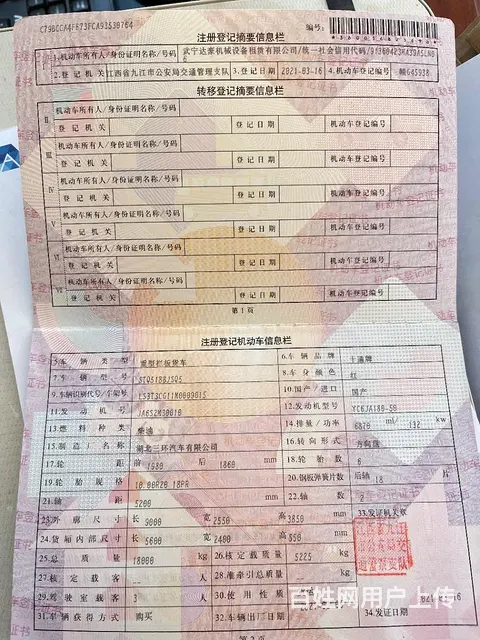 注册登记摘要信息栏
编号:
1.机动车所有人/身份证明名称/号码 武宁达豪机械设备租赁有限公司/统一社会信用代码/
2.登记机关 江西省九江市公安局交通管理支队 3.登记日期 2021-03-16 4.机动车登记编号 赣G45938
转移登记摘要信息栏
II 机动车所有人/身份证明名称/号码
登记机关 登记日期 机动车登记编号
III 机动车所有人/身份证明名称/号码
登记机关 登记日期 机动车登记编号
IV 机动车所有人/身份证明名称/号码
登记机关 登记日期 机动车登记编号
V 机动车所有人/身份证明名称/号码
登记机关 登记日期 机动车登记编号
VI 机动车所有人/身份证明名称/号码
登记机关 登记日期 机动车登记编号
VII 机动车所有人/身份证明名称/号码
登记机关 登记日期 机动车登记编号
第1页
注册登记机动车信息栏
5.车辆类型 重型栏板货车 6.车辆品牌 十通牌
7.车辆型号 8.车身颜色 红
9.车辆识别代号/车架号 10.国产/进口 国产
11.发动机号 12.发动机型号 YC6JA180-50
13.燃料种类 柴油 14.排量/功率 6870 ml/ 132 kw
15.制造厂名称 湖北三环汽车有限公司 16.转向形式 方向盘
17.轮距 前 1980 后 1860 mm 18.轮胎数 6
19.轮胎规格 10.00R20 18PR 20.钢板弹簧片数 后轴 18 片
21.轴距 5200 mm 22.轴数 2
23.外廓尺寸 长 9000 宽 2550 高 3850 mm 33.发证机关章
24.货厢内部尺寸 长 5600 宽 2400 高 550 mm
25.总质量 18000 kg 26.核定载质量 5225 kg
27.核定载客 人 28.准牵引总质量 kg
29.驾驶室载客 3 人 30.使用性质
31.车辆获得方式 购买 32.车辆出厂日期 34.发证日期
百姓网用户上传
第2页